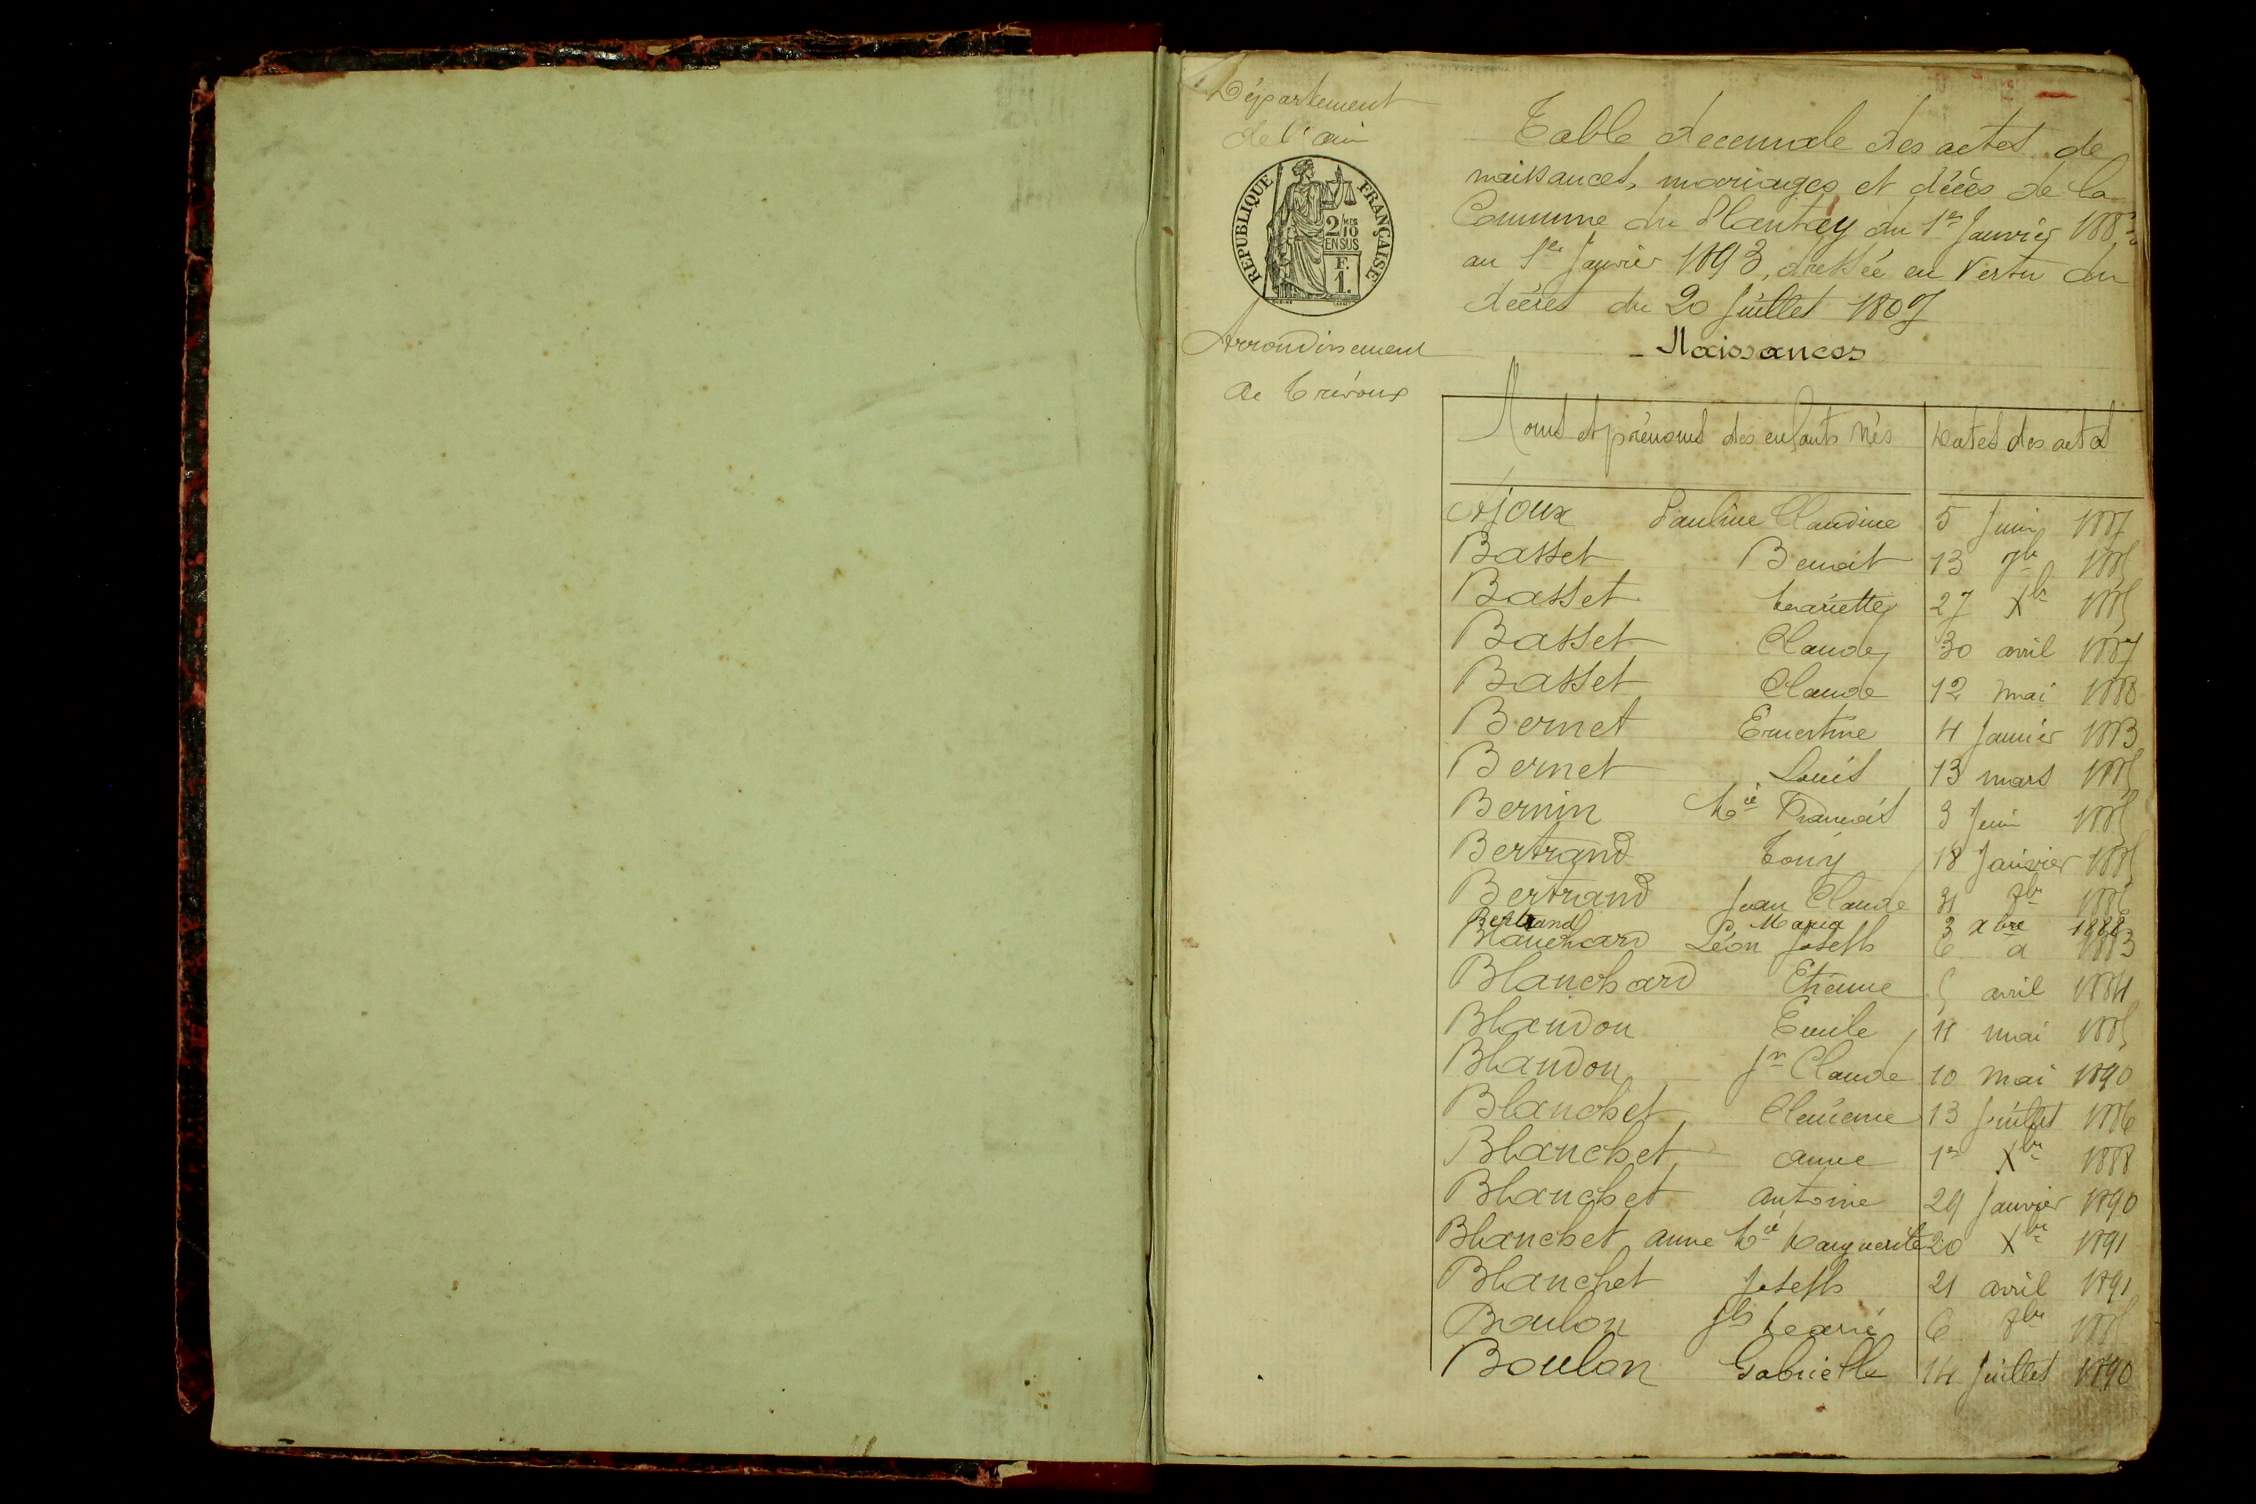 Département
de l'ain
RÉPUBLIQUE FRANÇAISE
2/10
EN SUS
F.
1.
Arrondissement
de Trévoux
Table decennale des actes de
naissances, mariages et décès de la
Commune du Plantay du 1er Janvier 1883
au 1er Janvier 1893, dressée en vertu du
décret du 20 Juillet 1807
- Naissances
Noms et prénoms des enfants nés Dates des actes
Ajoux Pauline Claudine 5 Juin 1887
Basset Benoit 13 7bre 1885
Basset Mariette 27 Xbre 1885
Basset Claude 30 avril 1887
Basset Claude 12 mai 1888
Bernet Ernestine 4 Janvier 1883
Bernet Louis 13 mars 1885
Bernin Mie François 3 Juin 1885
Bertrand Tony 18 Janvier 1885
Bertrand Jean Claude 7bre
Bertrand Maria 3 xbre 1888
Blanchard Léon Joseph 6 1883
Blanchard Etienne 5 avril 1884
Blandon Emile 11 mai 1885
Blandon Jn Claude 10 mai 1890
Blanchet 13 Juillet 1886
Blanchet anne 1er Xbre 1888
Blanchet antoine 29 Janvier 1890
Blanchet anne Mie Marguerite 20 Xbre 1891
Blanchet Joseph 21 avril 1891
Boulon Jh Marie 6 7bre 1885
Boulon Gabrielle 14 Juillet 1890